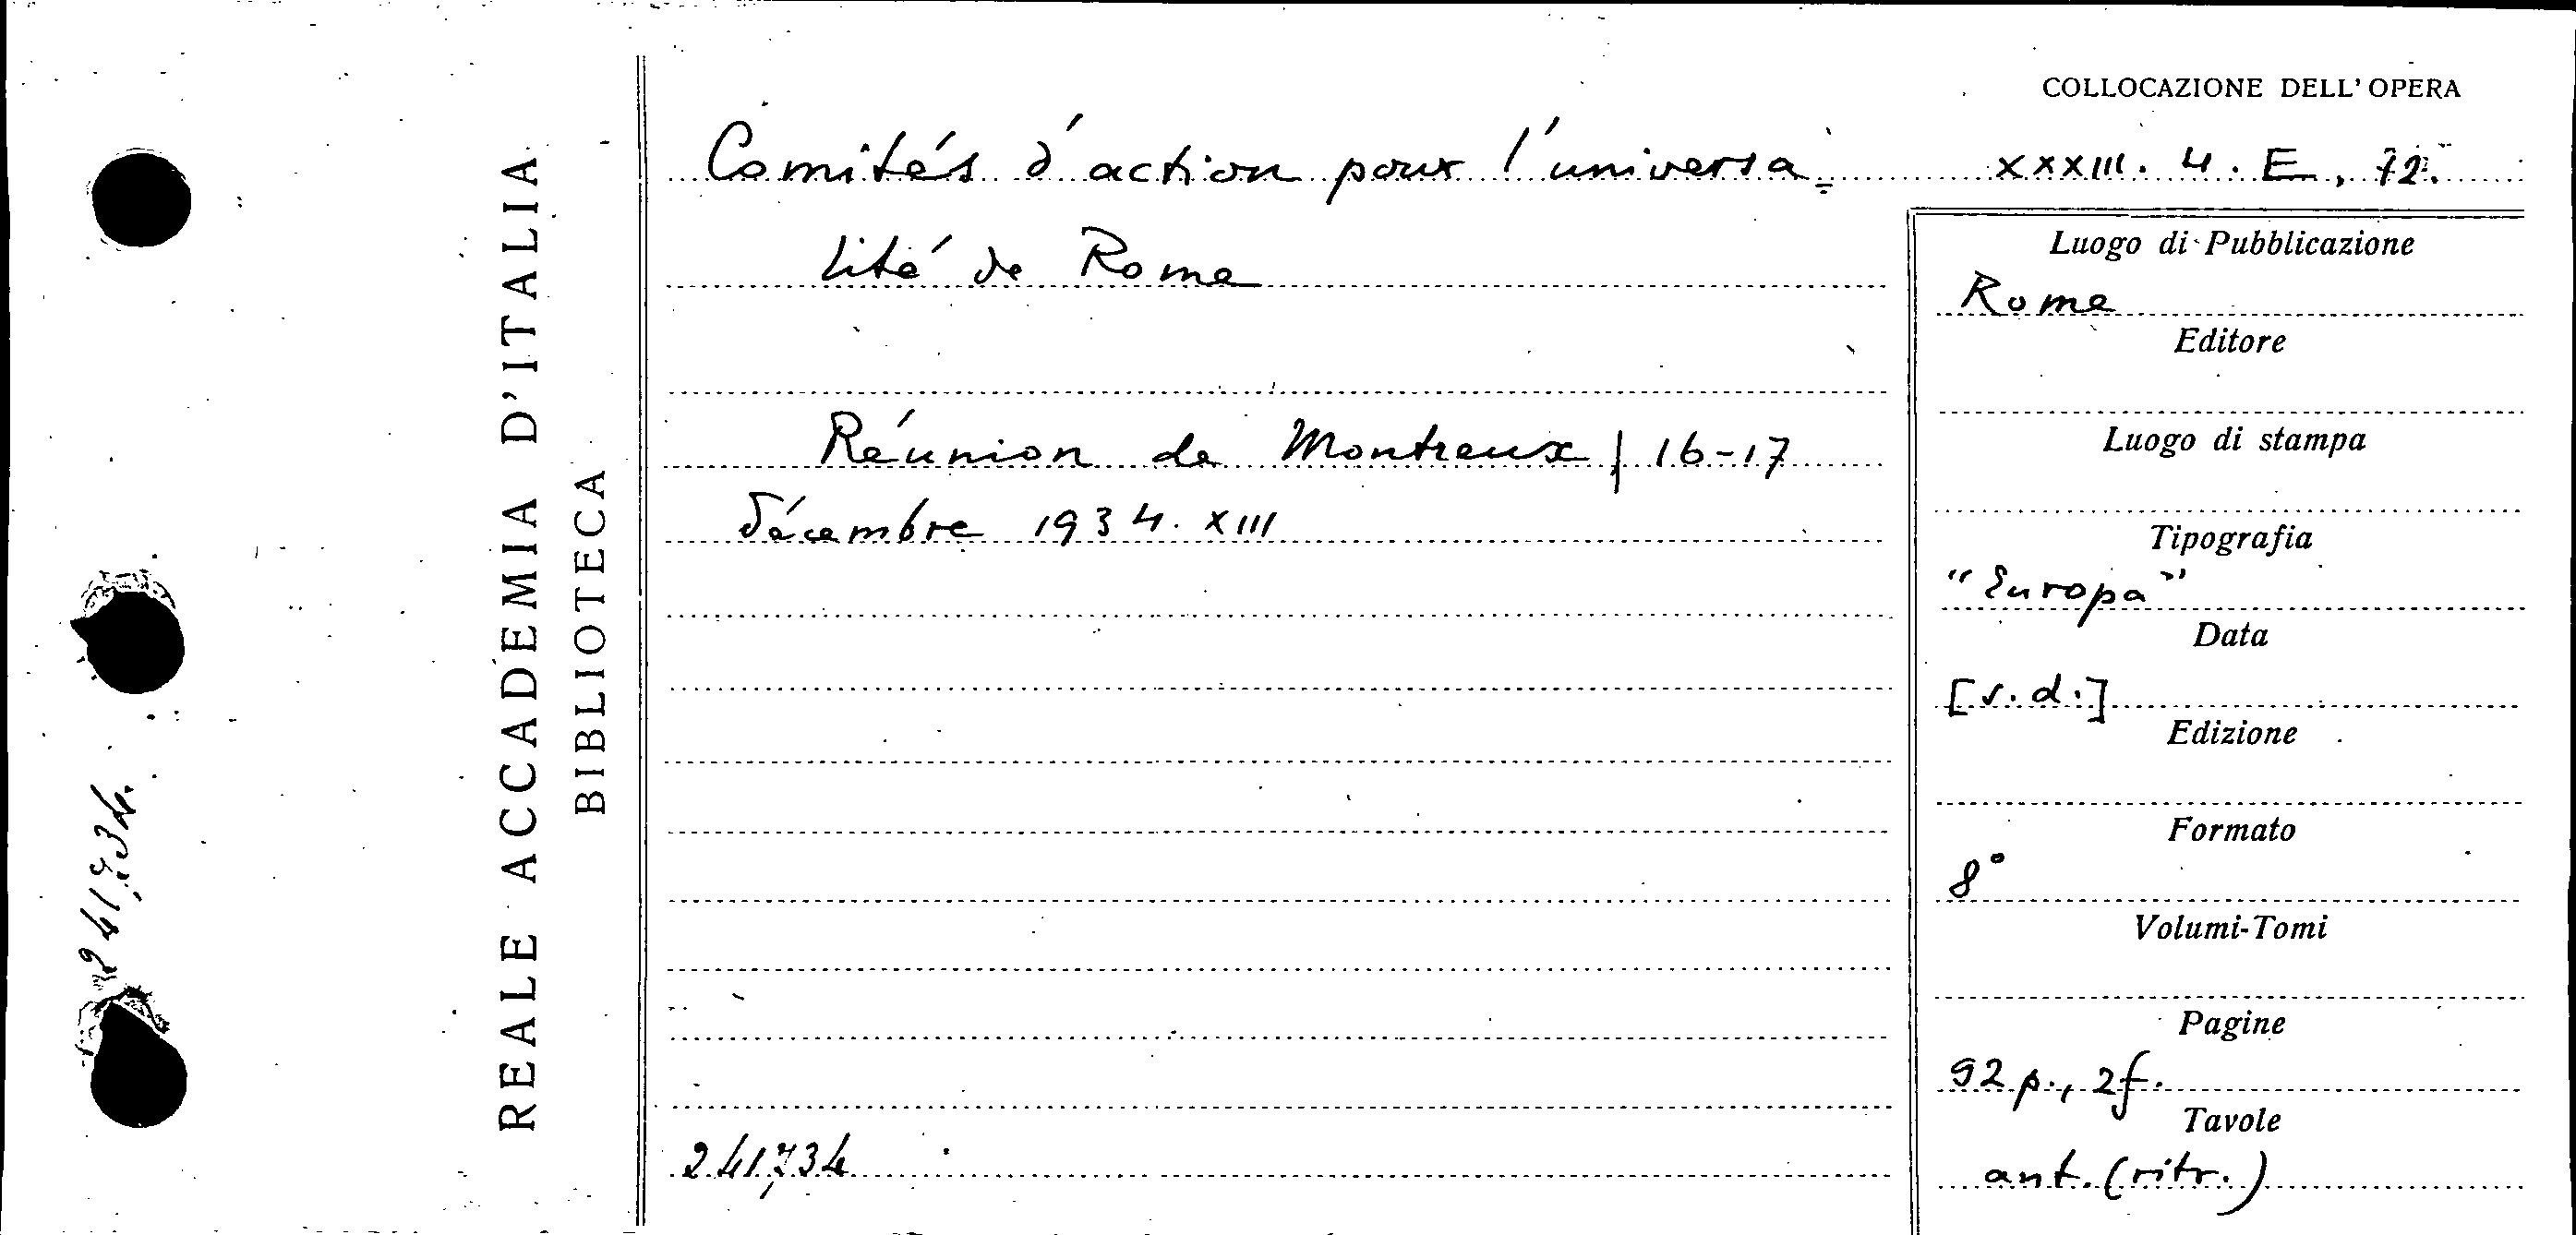 241734.
REALE ACCADEMIA D'ITALIA
BIBLIOTECA
Comités d'action pour l'universa=
lité de Rome
Réunion de Montreux / 16-17
décembre 1934. XIII
241734
COLLOCAZIONE DELL'OPERA
XXXIII. 4. E, 72.
Luogo di Pubblicazione
Rome
Editore
Luogo di stampa
Tipografia
"Europa"
Data
[s.d.]
Edizione
Formato
8°
Volumi-Tomi
Pagine
92 p., 2 f.
Tavole
ant. (ritr.)